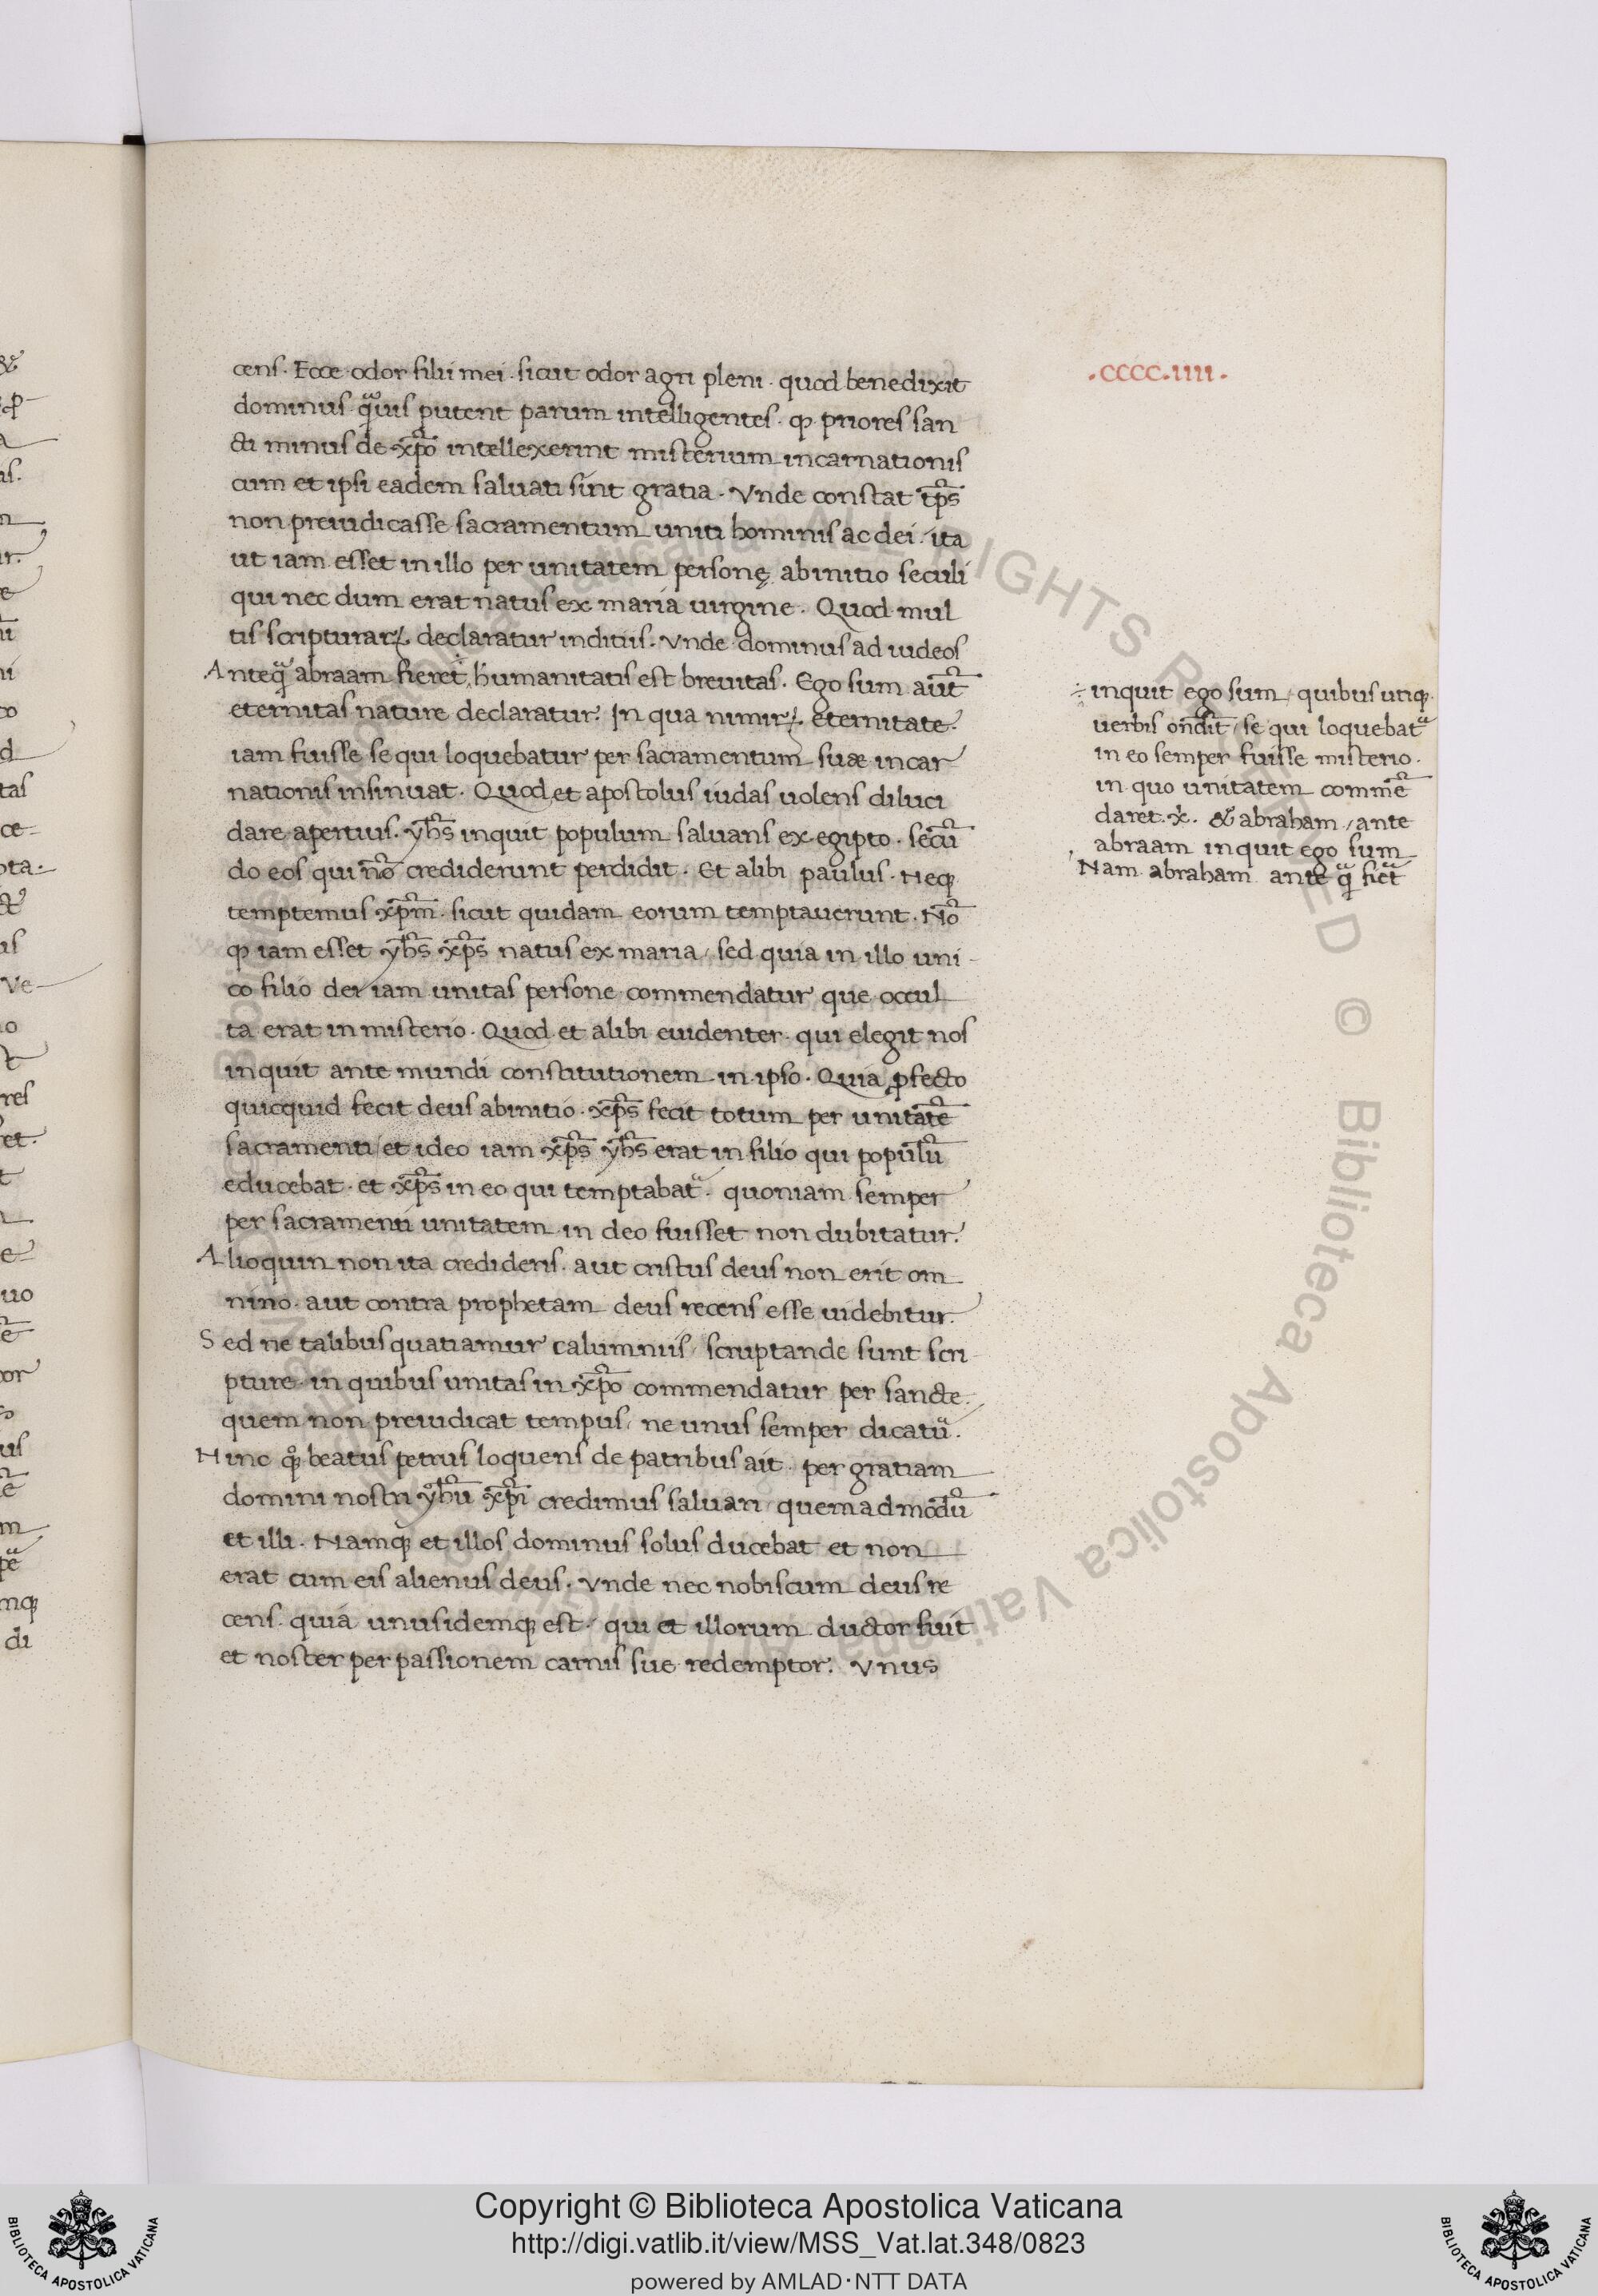 .CCCC.IIII.
cens. Ecce odor filii mei. sicut odor agri pleni. quod benedixit
dominus. q̃uis putent parum intelligentes. ꝙ priores san
cti minus de xp̃o intellexerint misterium incarnationis
cum et ipsi eadem saluati sint gratia. Vnde constat tp̃s
non preiudicasse sacramentum uniti hominis ac dei. ita
ut iam esset in illo per unitatem personę ab initio seculi
qui nec dum erat natus ex maria uirgine. Quod mul
tis scripturaꝝ declaratur inditiis. Vnde dominus ad iudeos
Anteq̃ abraam fieret. humanitatis est breuitas. Ego sum aũt
eternitas nature declaratur. In qua nimiꝝ eternitate.
iam fuisse se qui loquebatur per sacramentum suæ incar
nationis insinuat. Quod et apostolus iudas uolens diluci
dare apertius. yħs inquit populum saluans ex egipto. secũ
do eos qui nõ crediderunt perdidit. Et alibi paulus. Neqꝫ
temptemus xp̃m. sicut quidam eorum temptauerunt. Nõ
ꝙ iam esset yħs xp̃s natus ex maria / sed quia in illo uni-
co filio dei iam unitas persone commendatur que occul
ta erat in misterio. Quod et alibi euidenter. qui elegit nos
inquit ante mundi constitutionem in ipso. Quia ꝓfecto
quicquid fecit deus ab initio. xp̃s fecit totum per unitatẽ
sacramenti / et ideo iam xp̃s yħs erat in filio qui populũ
educebat. et xp̃s in eo qui temptabat̃. quoniam semper
per sacramenti unitatem in deo fuisset non dubitatur.
Alioquin non ita credideris. aut cristus deus non erit om
nino. aut contra prophetam deus recens esse uidebitur.
Sed ne talibus quatiamur calumniis / scruptande sunt scri-
pture in quibus unitas in xp̃o commendatur per sancte.
quem non preiudicat tempus / ne unus semper dicatũ.
Hinc qͦꝫ beatus petrus loquens de patribus ait. per gratiam
domini nostri yħu xp̃i credimus saluari / quemadmodũ
et illi. Namqꝫ et illos dominus solus ducebat et non
erat cum eis alienus deus. Vnde nec nobiscum deus re
cens. quia unus idemqꝫ est. qui et illorum ductor fuit
et noster per passionem carnis sue redemptor. Vnus
inquit ego sum / quibus utiqꝫ
uerbis on̄dit / se qui loquebat̃
in eo semper fuisse misterio.
in quo unitatem commẽ
daret. x̃. & abraham / ante
abraam inquit ego sum
Nam abraham ante q̃ fiet̃
ALL RIGHTS RESERVED © Biblioteca Apostolica Vaticana
Copyright © Biblioteca Apostolica Vaticana
http://digi.vatlib.it/view/MSS_Vat.lat.348/0823
powered by AMLAD·NTT DATA
BIBLIOTECA APOSTOLICA VATICANA
BIBLIOTECA APOSTOLICA VATICANA